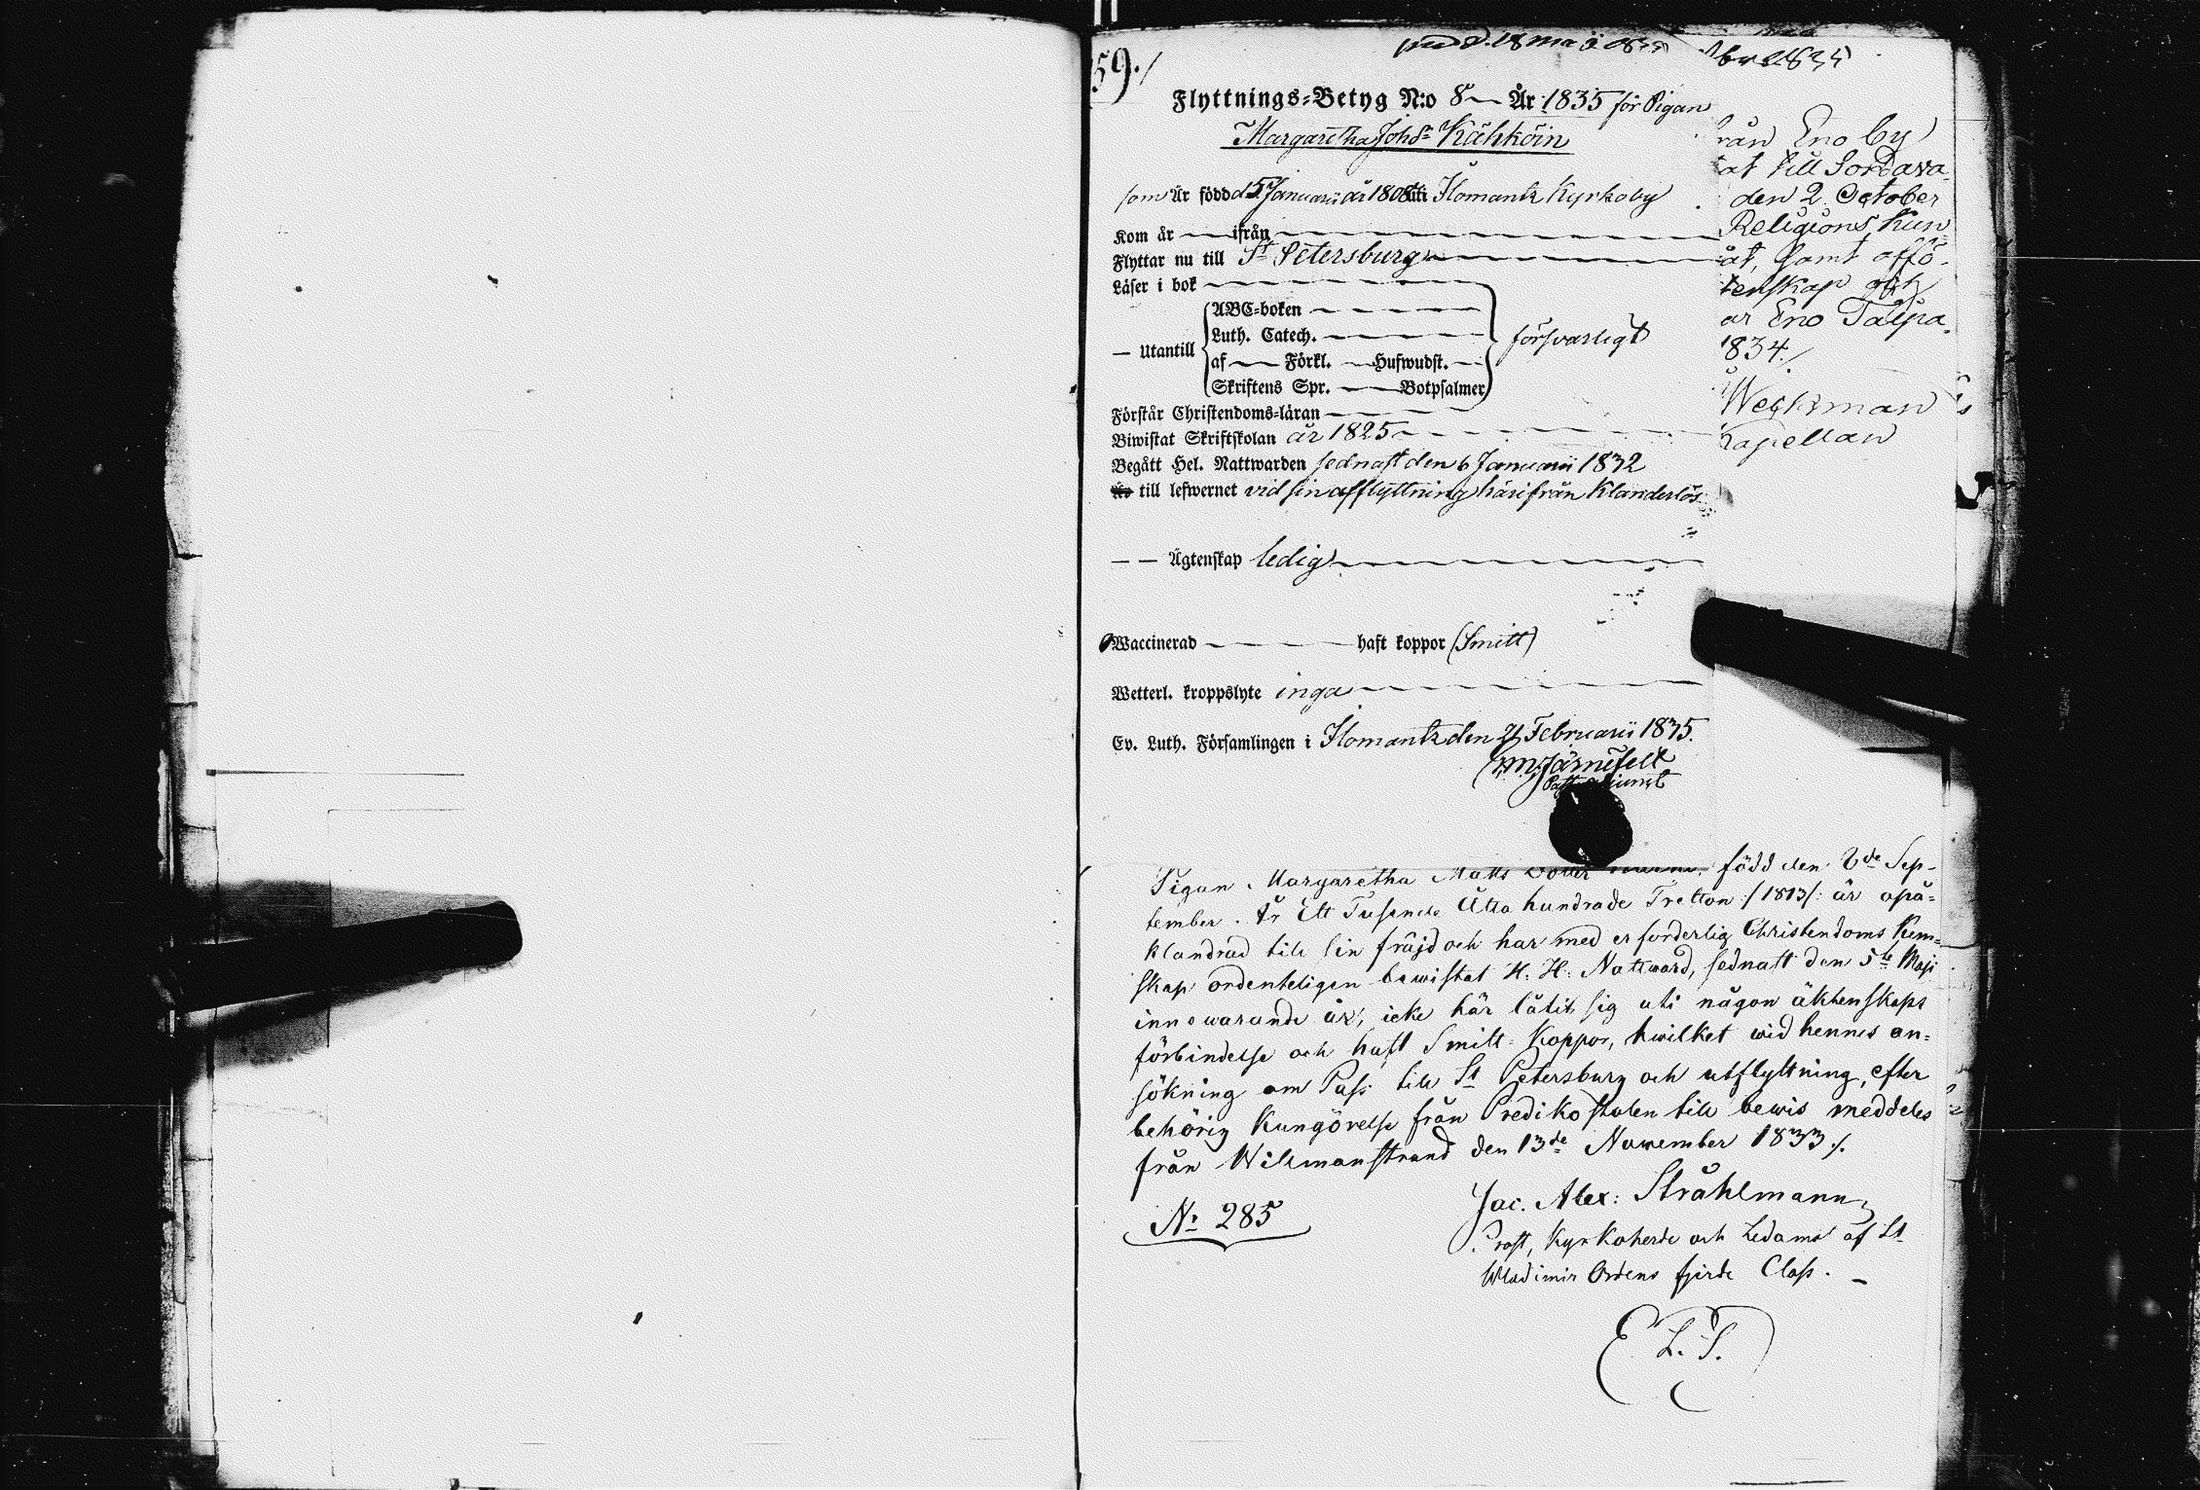 59.
Flyttnings-Betyg N:o 8 År 1835 för Pigan
Margaretha Johsdr Kähköin
som Är född d 5 Januarii år 1808 uti Ilomantz Kyrkoby
Kom år ifrån
Flyttar nu till St Petersburg
Läser i bok
Utantill
ABC-boken
Luth. Catech.
af Förkl. Hufwudst.
Skriftens Spr. Botpsalmer
försvarligt
Förstår Christendoms-läran
Biwistat Skriftskolan år 1825
Begått Hel. Nattwarden sednast den 6 Januarii 1832
till lefwernet vid sin afflyttning härifrån Klanderlös
Ägtenskap ledig
Waccinerad haft koppor (Smitt)
Wetterl. kroppslyte inga
Ev. Luth. Församlingen i Ilomantz den 21 Februarii 1835.
Järnefelt
rån Eno by
at till Sordava-
den 2 October
Religions Kun-
åt, samt offö-
tenskap och
ar Eno
1834./
Weckman
Kapellan
Pigan Margaretha Matts dotter född den 8de Sep-
tember År Ett Tusende Åtta hundrade Tretton /:1813/: är opå-
klandrad till sin fräjd och har med erforderlig Christendoms Kun-
skap ordenteligen bewistat H. H. Nattward, sednast den 5te Maji
innewarande år, icke här låtit sig uti någon äktenskaps
förbindelse och haft Smitt-Koppor, hwilket wid hennes an-
sökning om Pass till St Petersburg och utflyttning, efter
behörig Kungörelse från Predikostolen till bewis meddeles
från Wilmanstrand den 13de November 1833./.
No 285
Jac. Alex: Stråhlmann
Prost, Kyrkoherde och Ledamot af St
Wladimir Ordens fjerde Class.
L. S.